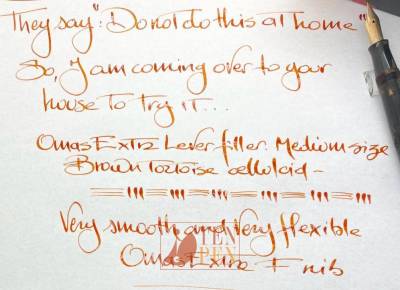 They say": Do not do this at home"
So, I am coming over to your
house to try it...
Omas Extra Lever filler. Medium size
Brown Tortoise celluloid -
Very smooth and very flexible
Omas Extra F nib
TEN
PEN